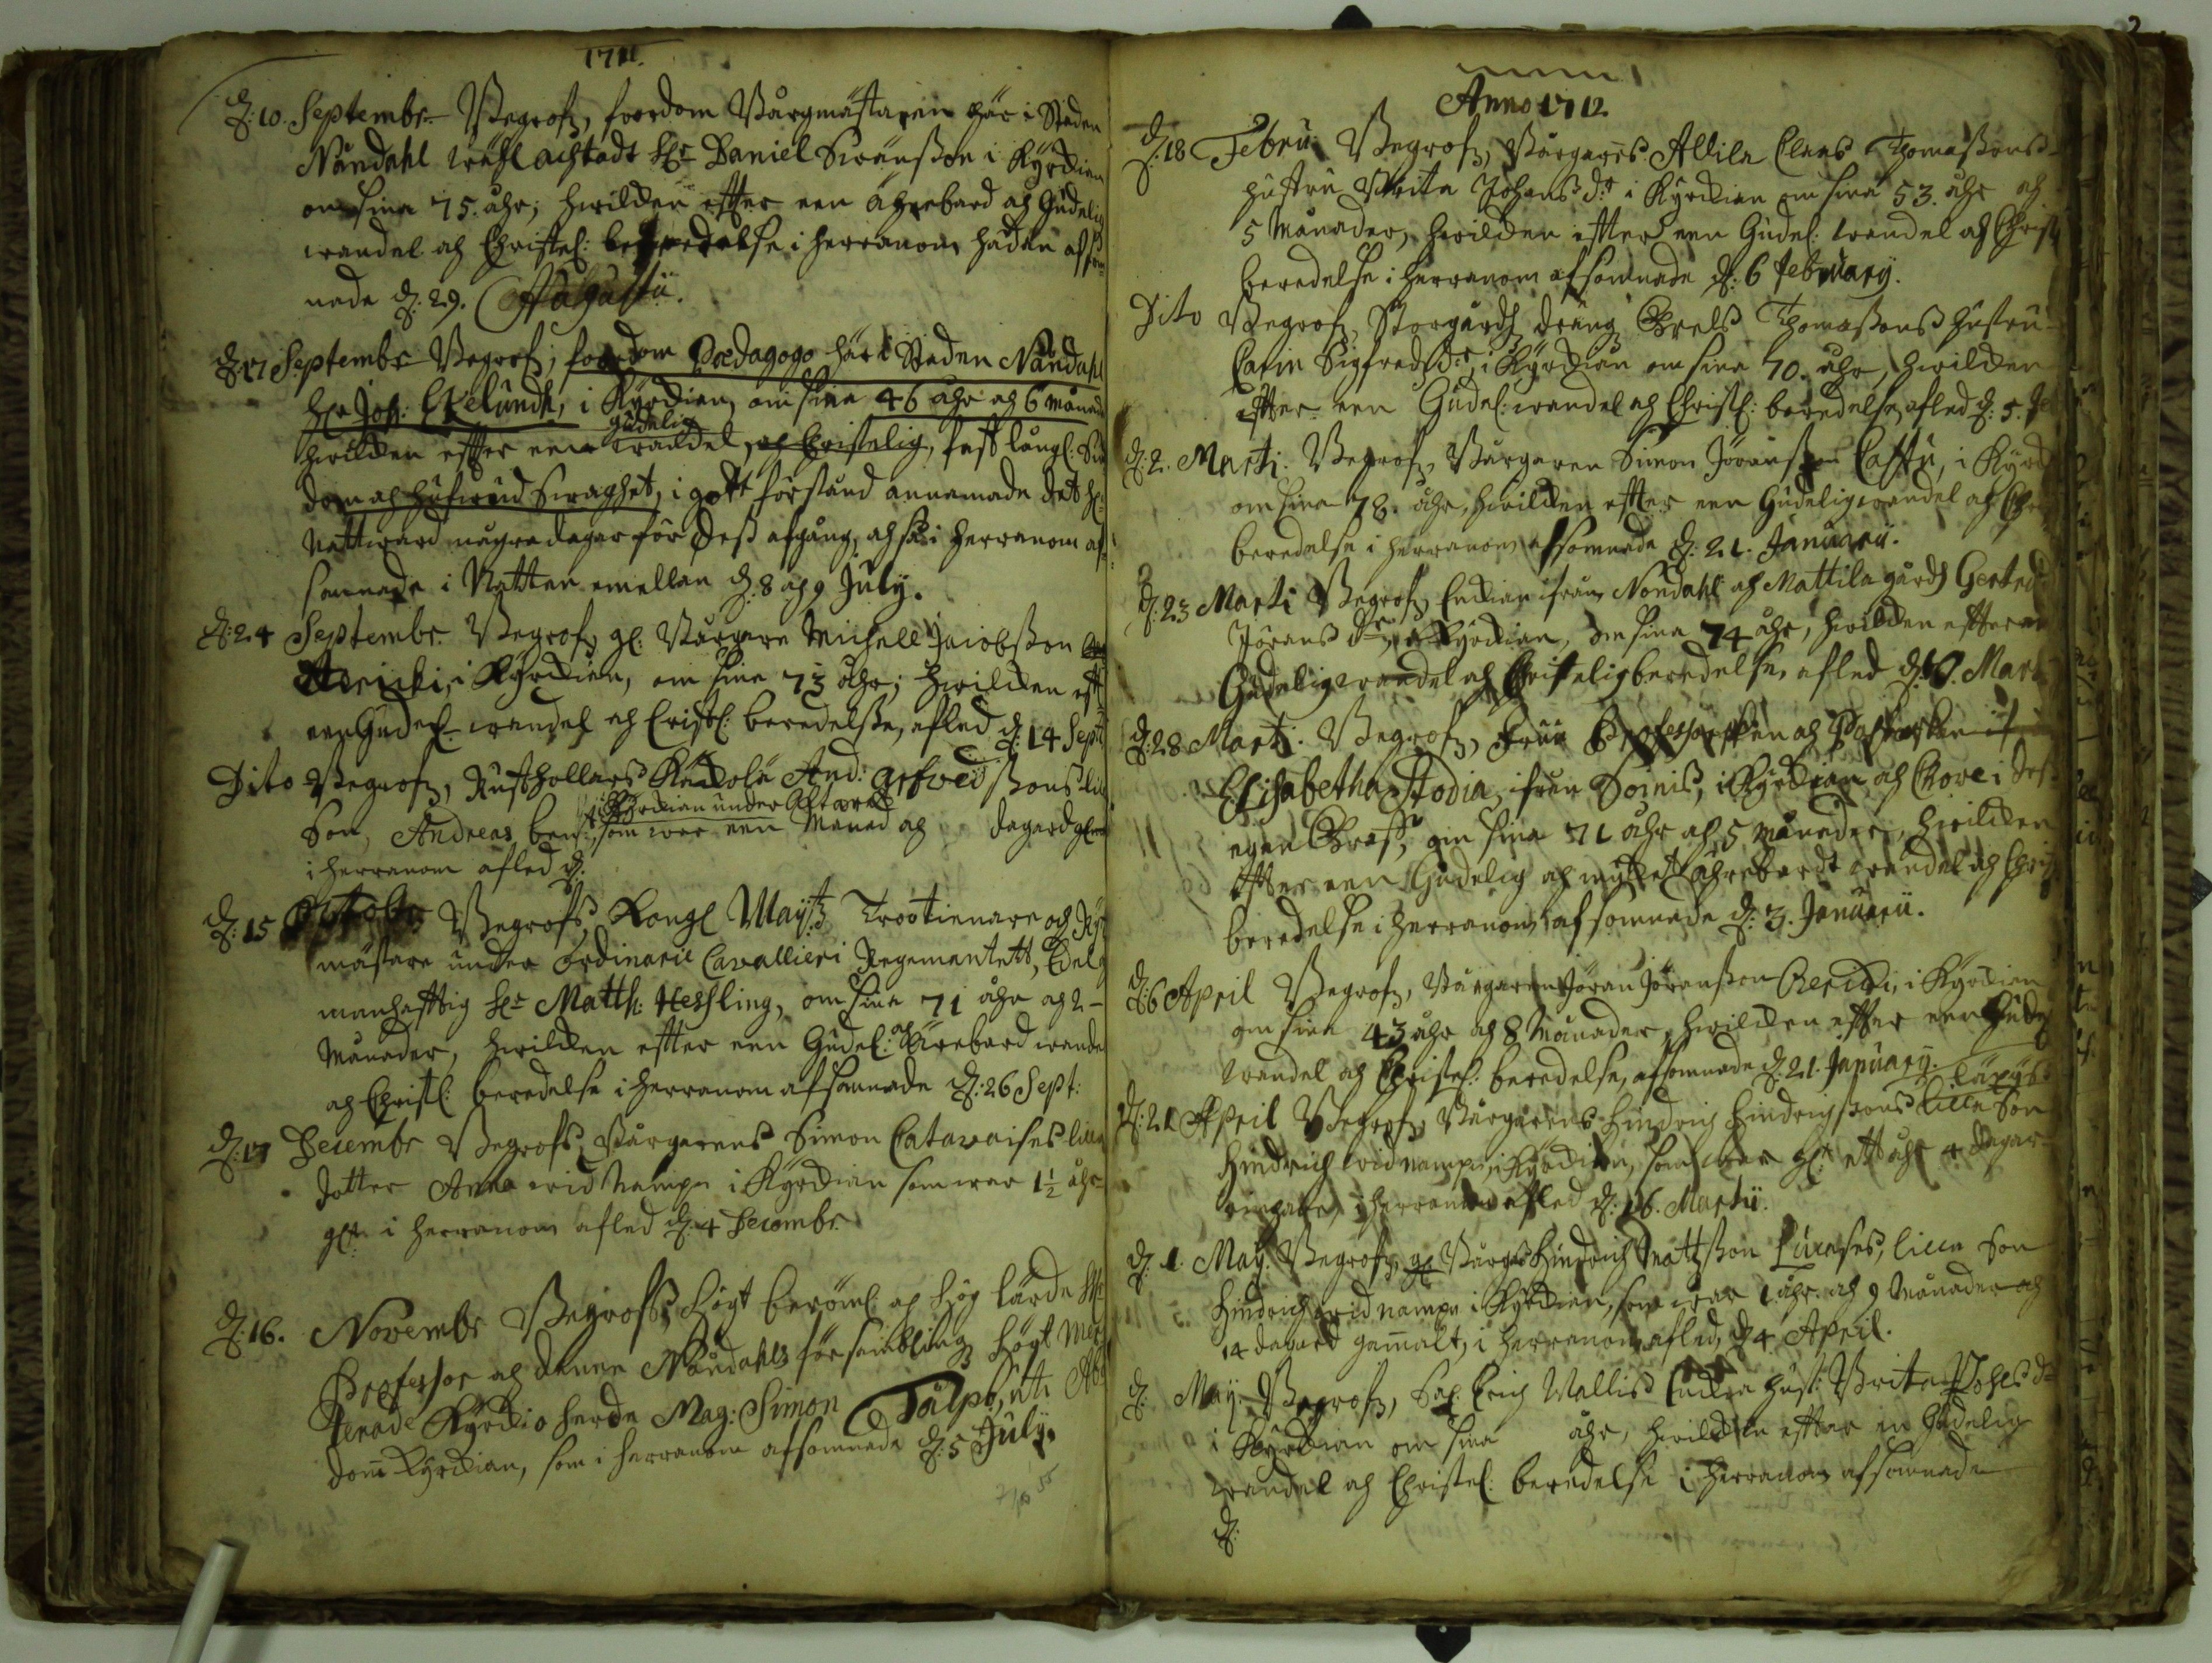 1711.
d: 10. Septembr. Begrofz, fordom Bårgmästaren här i Staden
Nåndahl wähl achtadt Hr Daniel Swensson i Kyrckian
om sina 75. åhr; hwilcken effter een ährebard och Gudelig
wandel och Christel: beredelse i Herranom hädan afsom-
nade d: 29. Augustii.
d: 17 Septembr Begrofz, fordom Pædagogo här i Staden Nåndahl
Hr Joh: Ekelundh, i Kyrckian, om sina 46 åhr och 6 månad
gudelig
hwilcken effter een wandel, och Christelig, fast långl: Siuk
dom och hufwud swaghet, i gott förstånd annamade det H:
Nattward någre dagar för dess afgång, och så i Herranom af-
somnade i Natten emellan d: 8 och 9 July.
d: 24 Septembr. Begrofz gl: Bårgare Michell Jacobsson
Kericki, i Kyrckian, om sina 73 åhr; hwilcken efft
een Gudel: wandel och Cristl: beredelsse, afled d: 14 Sept
Dito Begrofz, Rusthollars Kackola And: Grefwessons lilla
i Kyrckian under Altaret
Son, Andreas ben: som war een Månad och dagard gl:
i Herranom afled d:
d: 15 Octobr Begrofs, Kongl Maij:tz Trootienare och Ryt
mästare under Ordinarie Cavallieri Regementett, Edel
manhafftig Hr Matth: Hessling, om sina 71 åhr och 2-
Månader, hwilcken effter een Gudel: och Ährebard wandel
och Christl: beredelse i Herranom afsomnade d: 26 Sept:
d: 17 Decembr Begrofs Bårgarens Simon Catavaises lilla
dotter Anna wid Nampn i Kyrckian som war 1½ åhr
glt: i Herranom afled d: 4 Decembr.
d: 16. Novembr Begrofs, Högt beröml och Hög lärde Hr
Professor och denne Nåndahls försambling Högt Mer
terade Kyrckio herde Mag: Simon Tålpo, uti Åbo
dom Kyrckian, som i Herranom afsomnade d: 5 July.
Anno 1712.
d: 18 Febru: Begrofz, Bårgares Allila Claes Thomassons
hustru Brita Johans dr i Kyrckian om sina 53. åhr och
5 Månader, hwilcken effter een Gudel: wandel och Christ
beredelse i Herranom afsomnade d: 6 February.
Dito Begrofz, Storgårds dräng Brels Thomassons hustru
Carin Sigfreds dr, i Kyrckian om sina 70. åhr, hwilcken
effter een Gudel: wandel och Christl: beredelse, afled d: 5.
d: 2. Marti: Begrofz, Bårgaren Simon Jöransson Castu, i Kyrck
om sina 78. åhr, hwilcken effter een Gudelig wandel och Chr
beredelse i Herranom afsomnade d: 21. Januarii.
d: 23 Marti Begrofz, Enckian ifrån Nondahl och Mattila gårds Gertrud
Jörans dr, i Kyrckian, om sina 74 åhr, hwilcken effter en
Gudelig wandel och Christelig beredelse, afled d: 10. Mart
d: 28 Marti. Begrofz, Fruu Professorskan och Pastorskan
Elisabetha Stodia, ifrån Soinis, i Kyrckian, och Chore i dess
egen Graf, om sina 71 åhr och 5 Månader, hwilcken
effter een Gudelig och mycket ährebardt wandel och Chris
beredelse i Herranom afsomnade d: 3. Januarii.
d: 6 April Begrofz, Bårgaren Jöran Jöransson Kericki, i Kyrckian
om sina 43 åhr och 8 Månader, hwilcken effter een Gude
wandel och Christel: beredelse, afsomnade d: 21. January.
d: 21 April Begrofz Bårgarens Hindrich Hindrichssons lilla Son
Hindrich wid nampn, i Kyrckian, som war glt: ett åhr 4 dagar
i Herranom afled d: 16. Martii.
d: 1. May Begrofz, gl Bårgs Hindrich Mattsson Lurases, lilla Son
Hindrich wid nampn i Kyrckian, som war 1 åhr och 9 Månader och
14 dagard gammalt, i Herranom afled, d: 4. April.
d: May Begrofz, Sal. Erich Wallis Enckia hust: Brita Pohls dr
i Kyrckian om sina åhr, hwilcken effter en Gudelig
wandel och Christel: beredelse i Herranom afsomnade
d: